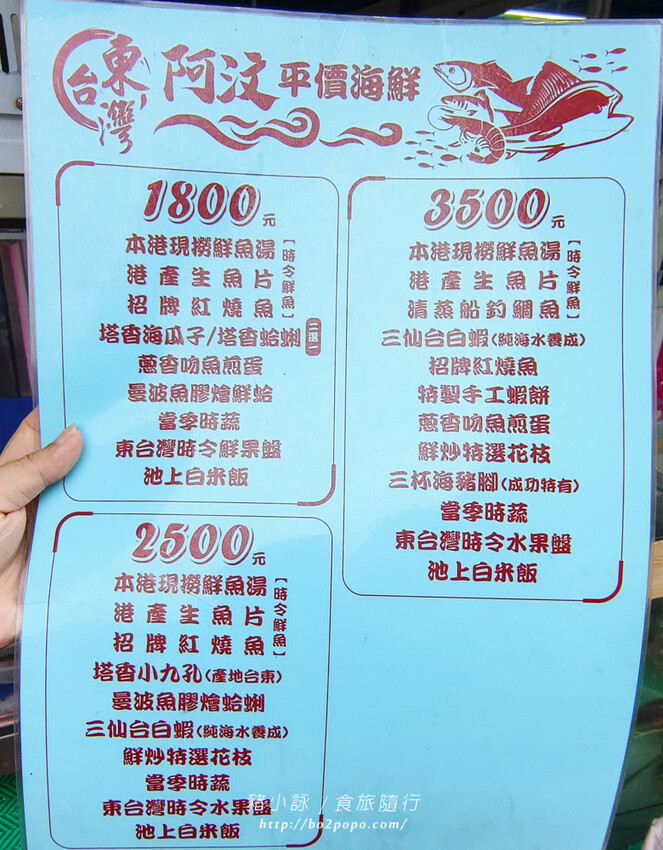 東台灣
阿汶平價海鮮
1800元
本港現撈鮮魚湯
港產生魚片
招牌紅燒魚
【時令鮮魚】
塔香海瓜子/塔香蛤蜊 二選一
蔥香吻魚煎蛋
曼波魚膠燴鮮蛤
當季時蔬
東台灣時令鮮果盤
池上白米飯
2500元
本港現撈鮮魚湯
港產生魚片
招牌紅燒魚
【時令鮮魚】
塔香小九孔(產地台東)
曼波魚膠燴蛤蜊
三仙台白蝦(純海水養成)
鮮炒特選花枝
當季時蔬
東台灣時令水果盤
池上白米飯
3500元
本港現撈鮮魚湯
港產生魚片
清蒸船釣鯛魚
【時令鮮魚】
三仙台白蝦(純海水養成)
招牌紅燒魚
特製手工蝦餅
蔥香吻魚煎蛋
鮮炒特選花枝
三杯海豬腳(成功特有)
當季時蔬
東台灣時令水果盤
池上白米飯
豬小詠 / 食旅隨行
http://bo2popo.com/